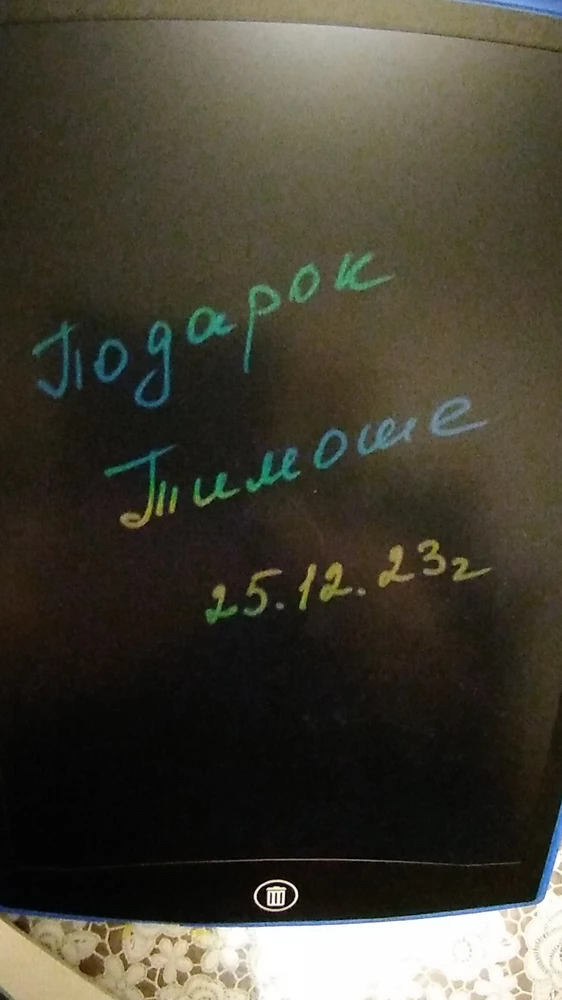 Подарок
Тимоше
25.12.23г